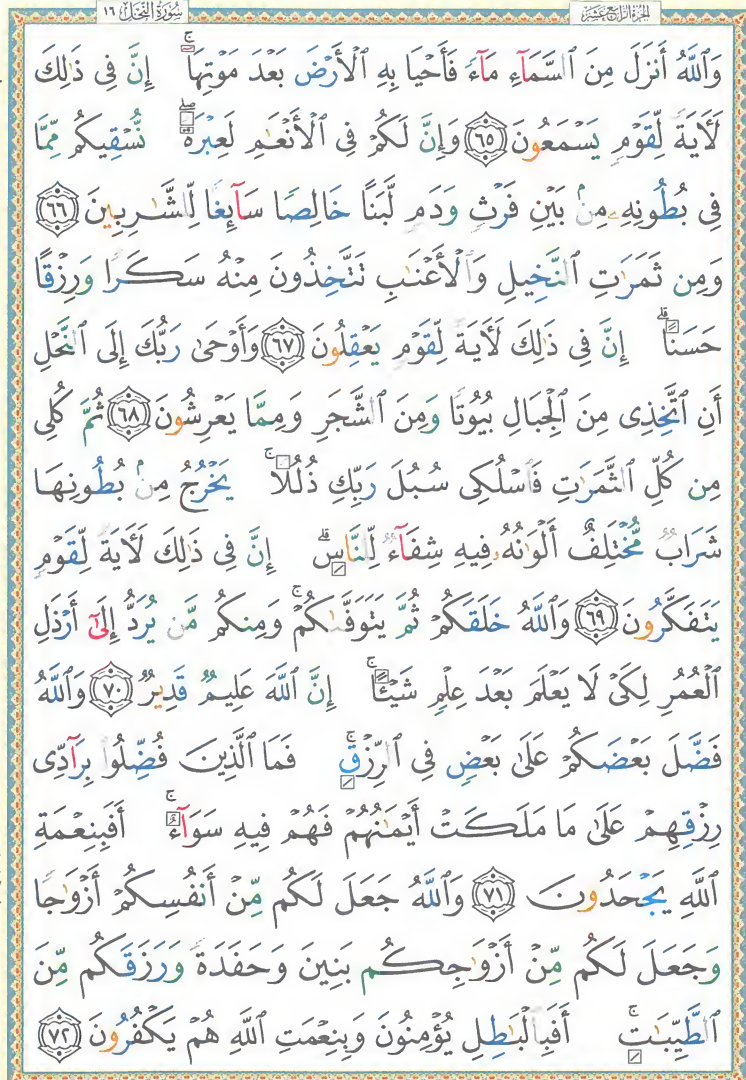 سُورَةُ النَّحْلِ ١٦ الجُزْءُ الرَّابِعَ عَشَرَ
وَٱللَّهُ أَنزَلَ مِنَ ٱلسَّمَآءِ مَآءً فَأَحْيَا بِهِ ٱلْأَرْضَ بَعْدَ مَوْتِهَآ ۚ إِنَّ فِى ذَٰلِكَ
لَأَيَةً لِّقَوْمٍ يَسْمَعُونَ ٦٥ وَإِنَّ لَكُمْ فِى ٱلْأَنْعَٰمِ لَعِبْرَةً ۖ نُّسْقِيكُم مِّمَّا
فِى بُطُونِهِۦ مِنۢ بَيْنِ فَرْثٍ وَدَمٍ لَّبَنًا خَالِصًا سَآئِغًا لِّلشَّٰرِبِينَ ٦٦
وَمِن ثَمَرَٰتِ ٱلنَّخِيلِ وَٱلْأَعْنَٰبِ تَتَّخِذُونَ مِنْهُ سَكَرًا وَرِزْقًا
حَسَنًا ۗ إِنَّ فِى ذَٰلِكَ لَأَيَةً لِّقَوْمٍ يَعْقِلُونَ ٦٧ وَأَوْحَىٰ رَبُّكَ إِلَى ٱلنَّحْلِ
أَنِ ٱتَّخِذِى مِنَ ٱلْجِبَالِ بُيُوتًا وَمِنَ ٱلشَّجَرِ وَمِمَّا يَعْرِشُونَ ٦٨ ثُمَّ كُلِى
مِن كُلِّ ٱلثَّمَرَٰتِ فَٱسْلُكِى سُبُلَ رَبِّكِ ذُلُلًا ۚ يَخْرُجُ مِنۢ بُطُونِهَا
شَرَابٌ مُّخْتَلِفٌ أَلْوَٰنُهُۥ فِيهِ شِفَآءٌ لِّلنَّاسِ ۗ إِنَّ فِى ذَٰلِكَ لَأَيَةً لِّقَوْمٍ
يَتَفَكَّرُونَ ٦٩ وَٱللَّهُ خَلَقَكُمْ ثُمَّ يَتَوَفَّىٰكُمْ ۚ وَمِنكُم مَّن يُرَدُّ إِلَىٰٓ أَرْذَلِ
ٱلْعُمُرِ لِكَىْ لَا يَعْلَمَ بَعْدَ عِلْمٍ شَيْـًٔا ۚ إِنَّ ٱللَّهَ عَلِيمٌ قَدِيرٌ ٧٠ وَٱللَّهُ
فَضَّلَ بَعْضَكُمْ عَلَىٰ بَعْضٍ فِى ٱلرِّزْقِ ۚ فَمَا ٱلَّذِينَ فُضِّلُوا۟ بِرَآدِّى
رِزْقِهِمْ عَلَىٰ مَا مَلَكَتْ أَيْمَٰنُهُمْ فَهُمْ فِيهِ سَوَآءٌ ۚ أَفَبِنِعْمَةِ
ٱللَّهِ يَجْحَدُونَ ٧١ وَٱللَّهُ جَعَلَ لَكُم مِّنْ أَنفُسِكُمْ أَزْوَٰجًا
وَجَعَلَ لَكُم مِّنْ أَزْوَٰجِكُم بَنِينَ وَحَفَدَةً وَرَزَقَكُم مِّنَ
ٱلطَّيِّبَٰتِ ۚ أَفَبِٱلْبَٰطِلِ يُؤْمِنُونَ وَبِنِعْمَتِ ٱللَّهِ هُمْ يَكْفُرُونَ ٧٢